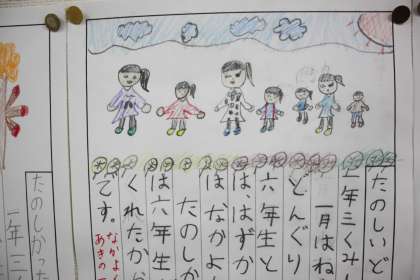 たのしいど
一年三くみ
一月はね
どんぐり
六年生と
は、はずか
はなかよ
たのしか
は六年生
くれたから
です。
なかよ
あきの
たのしかっ
一年三